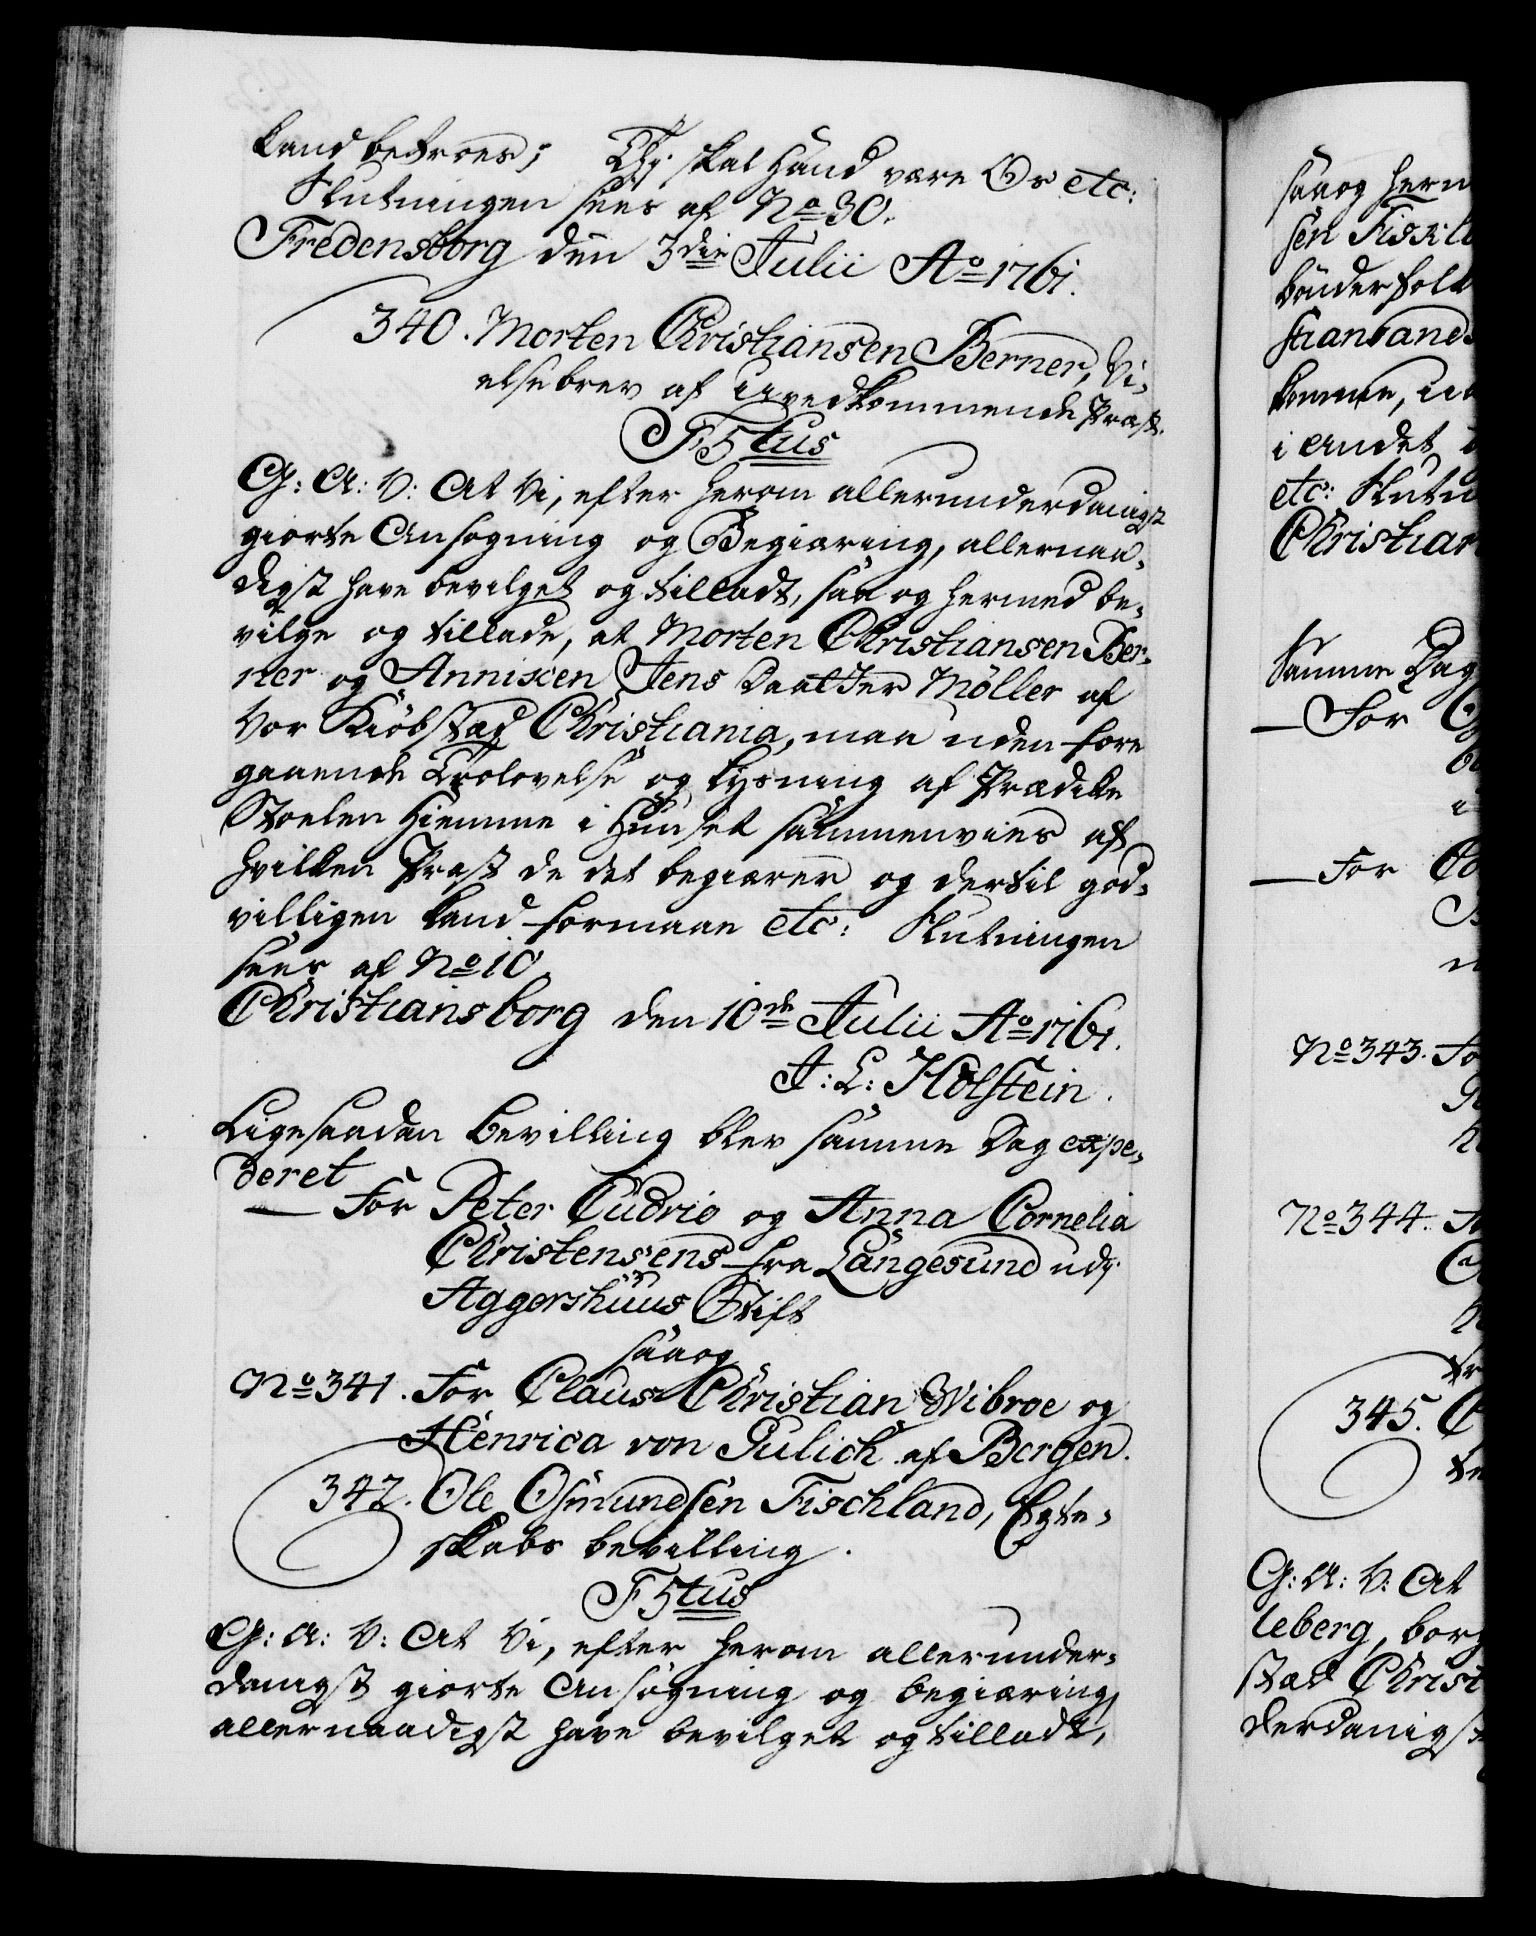 kand betroes; Thj skal Hand være Os etc:
Slutningen sees af No 30.
Fredensborg den 3die Julii Ao 1761.
340. Morten Christiansen Berner, Vi-
elsebrev af Uvedkommende Præst.
F5tus
G: A: V: At Vi, efter herom allerunderdanigst
giorte Ansøgning og Begiæring, allernaa-
digst have bevilget og tilladt, saa og hermed be-
vilge og tillade, at Morten Christiansen Ber-
ner og Annixen Jens Daatter Möller af
Vor Kiøbstæd Christiania, maa uden fore
gaaende Trolovelse og Lysning af Prædike
Stoelen hiemme i Huuset sammenvies af
hvilken Præst de det begiærer og dertil god-
villigen kand formaae etc: Slutningen
sees af No 10
Christiansborg den 10de Julii Ao 1761.
J: L: Holstein.
Ligesaadan Bevilling blev samme Dag expe-
deret
— For Peter Cudrio og Anna Cornelia
Christensens fra Langesund udj
Aggershuus Stift
saaog
No 341. For Claus Christian Wibroe og
Henrica von Gulich af Bergen.
342. Ole Osmundsen Fischland, Egte-
skabs bevilling.
F5tus
G: A: V: At Vi, efter herom allerunder-
danigst giorte Ansøgning og begiæring
allernaadigst have bevilget og tilladt,
saaog herm
sen Fiskla
bönder folk
stiansands
komme,
i andet
etc: Slutn
Christian
Samme Dag
— For
— For
No 343. Fo
No 344.
345.
G: A: V: At
leberg, borg
stæd Christ
derdanigst